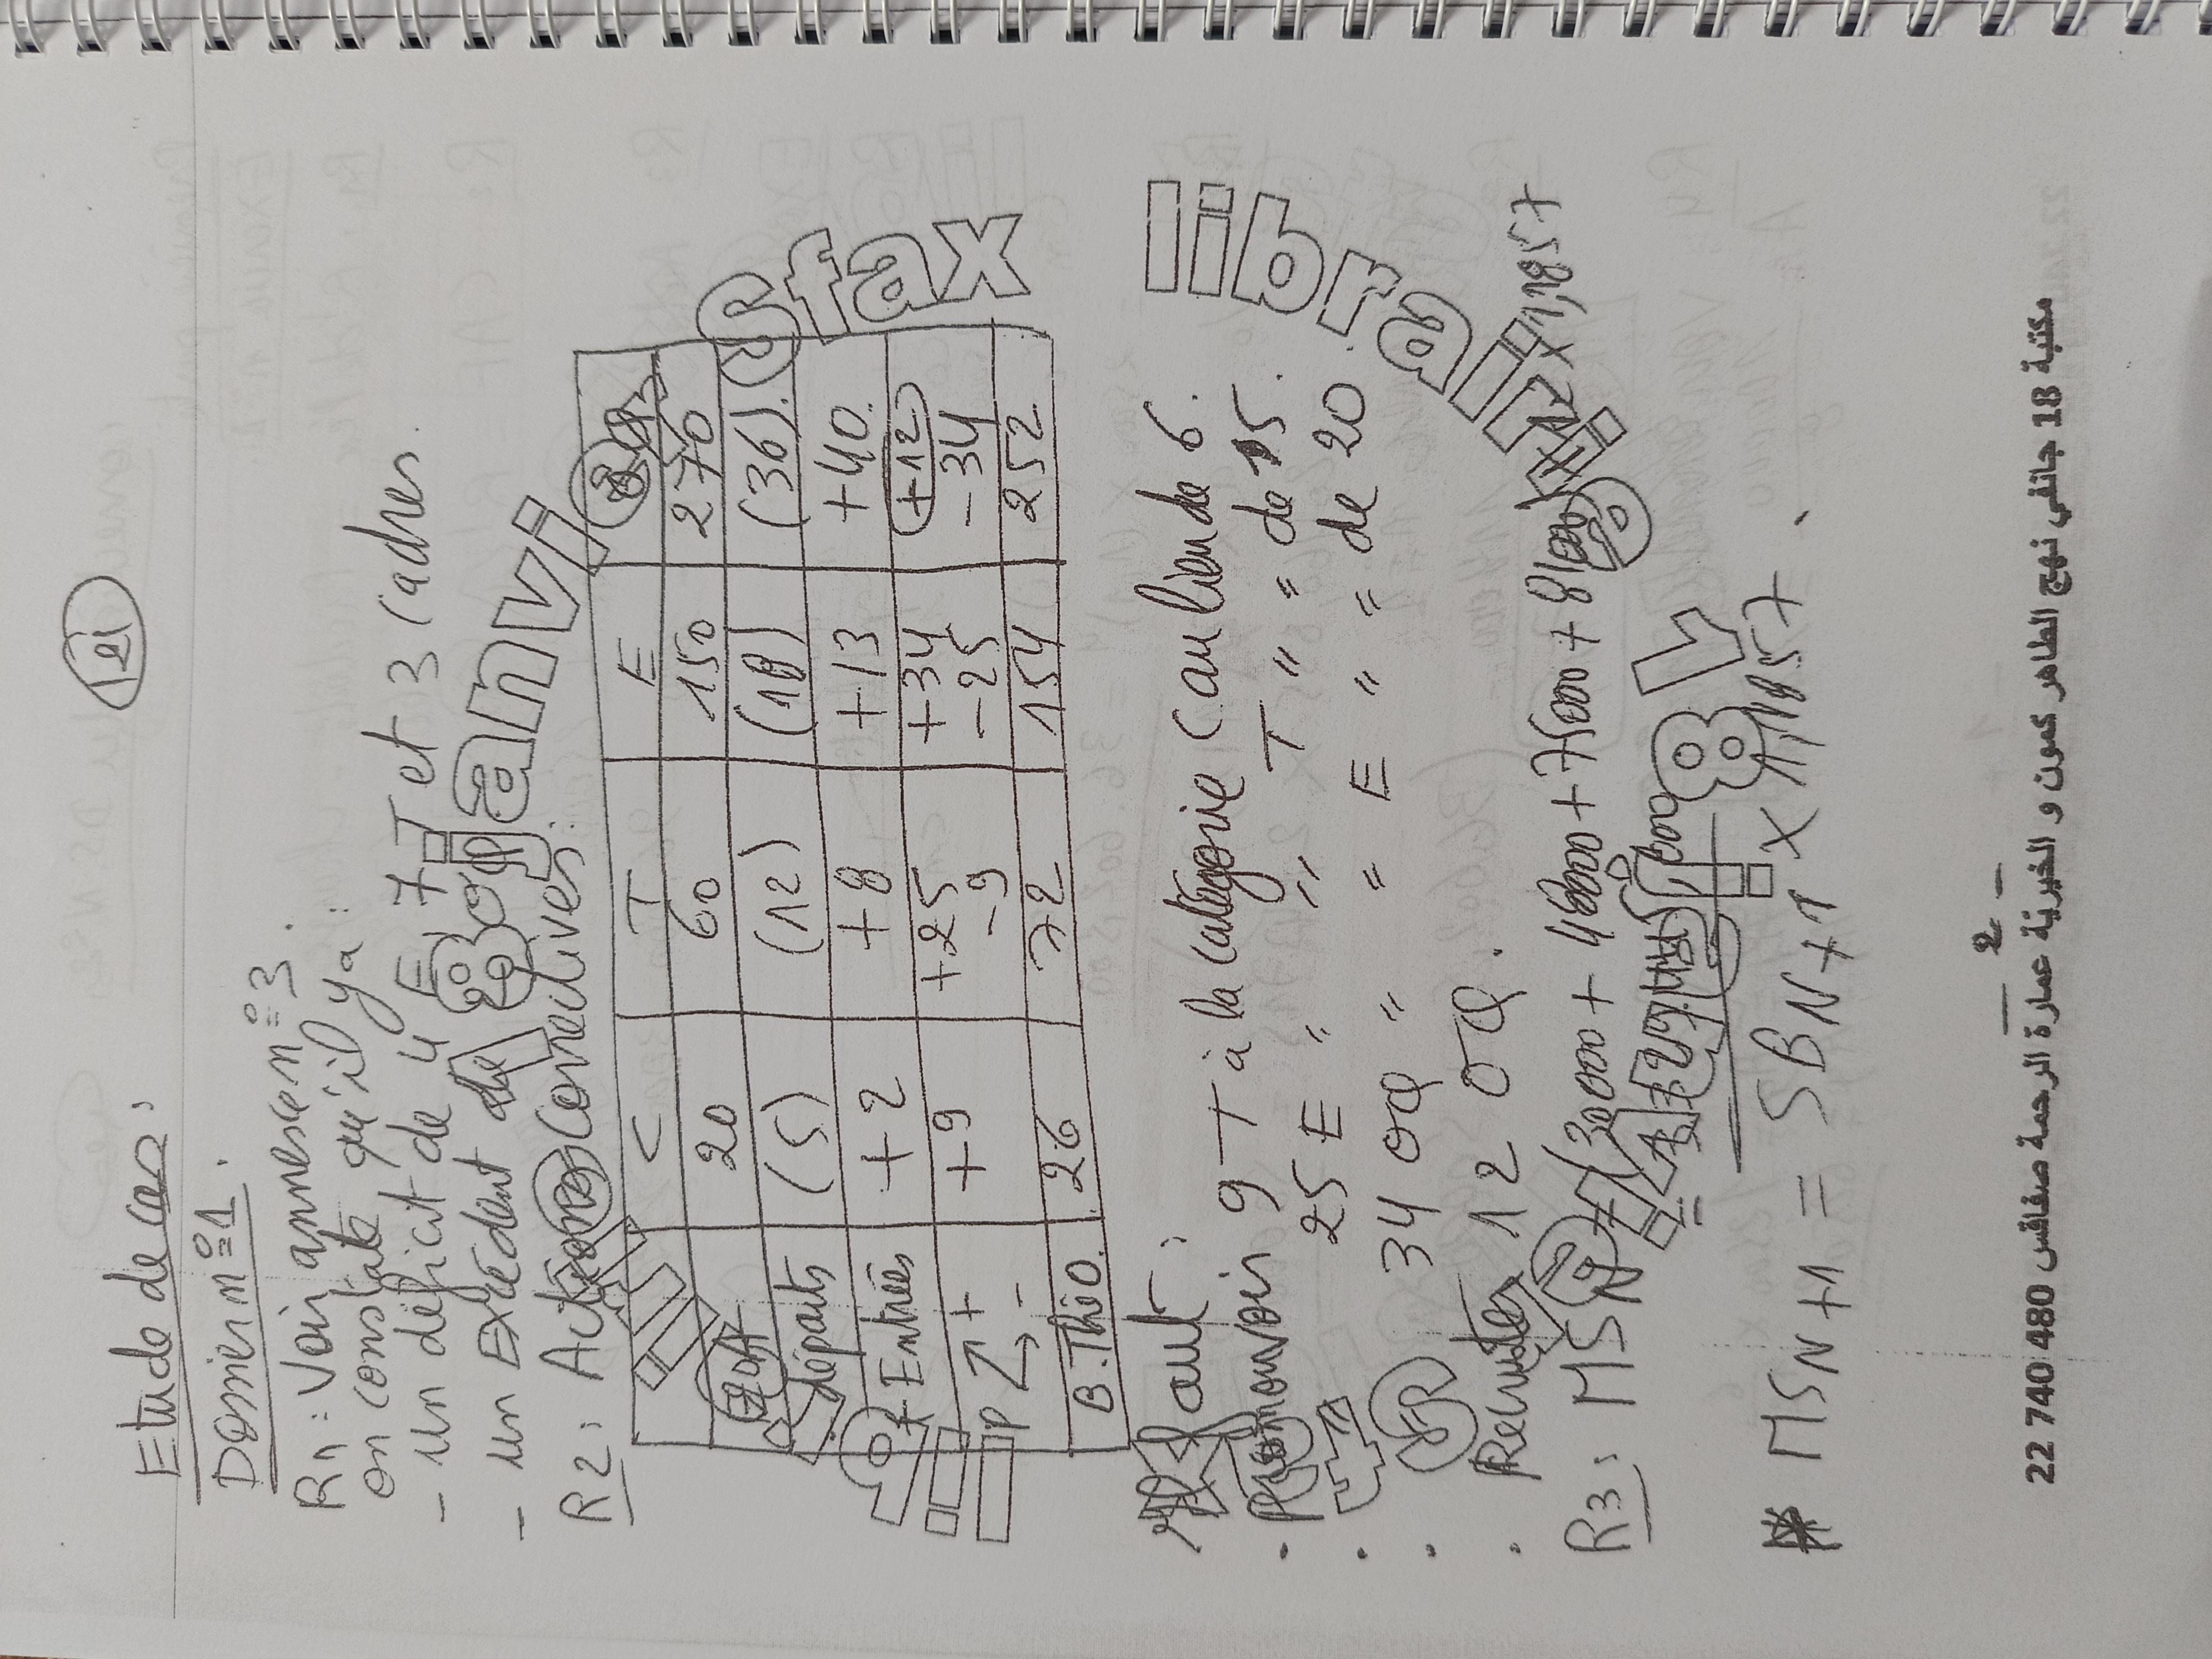 121
Etude de cas:
Dossier n°=1.
R1: Voir annexe n°=3.
on constate qu'il y a:
- un déficit de 4 E, 7 T et 3 Cadres.
- un Excédent de OQ
R2: Actions Correctives:
C T E OQ
20 60 150 270
départs (5) (12) (18) (36)
+ Entrées +2 +8 +13 +40
P + +9 +25 +34 +12
- -9 -25 -34
B. Théo. 26 72 154 252
Il faut:
. Promouvoir 9 T à la catégorie C au lieu de 6.
. 25 E " " T " de 15.
. 34 OQ " " E " " de 20.
. Recruter 12 OQ.
R3: MSN = (30000 + 46000 + 75000 + 81000) x 12 x 1,1857
=
* MSN+1 = SBN+1 x 1,1857.
- 2 -
مكتبة 18 جانفي نهج الطاهر كمون و الخيرية عمارة الرحمة صفاقس 480 740 22
librairie 18 Janvier Sfax